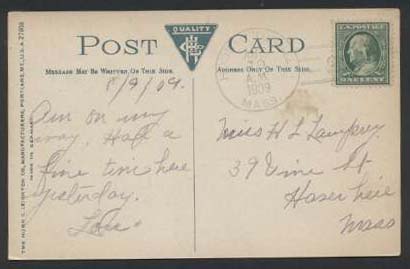 POST CARD
QUALITY
MESSAGE MAY BE WRITTEN ON THIS SIDE.
ADDRESS ONLY ON THIS SIDE
THE HUGH C. LEIGHTON CO., MANUFACTURERS, PORTLAND, ME., U.S.A.
MADE IN GERMANY
8/9/09.
Am on my
way. Had a
fine time here
yesterday.
A.M.
1909
MASS.
U.S. POSTAGE
ONE CENT
Miss H L
39 Vine St
Mass